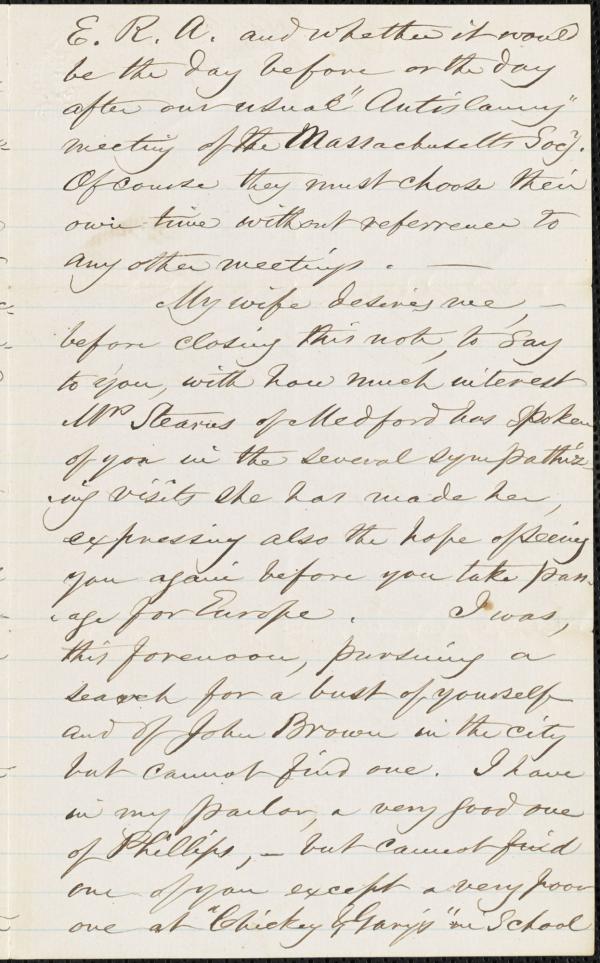 E. R. A. and whether it would
be the day before or the day
after our usual "Antislavery"
meeting of the Massachusetts Socy.
Of course they must choose their
own time without referrence to
any other meetings. —
My wife desires me, —
before closing this note, to say
to you, with how much interest
Mrs Stearns of Medford has spoken
of you in the several sympathiz-
ing visits she has made her,
expressing also the hope of seeing
you again before you take pass-
age for Europe. I was,
this forenoon, pursuing a
search for a bust of yourself
and of John Brown in the city
but cannot find one. I have
in my parlor, a very good one
of Phillips, — but cannot find
one of you except a very poor
one at "Chickey & Gary's" in School